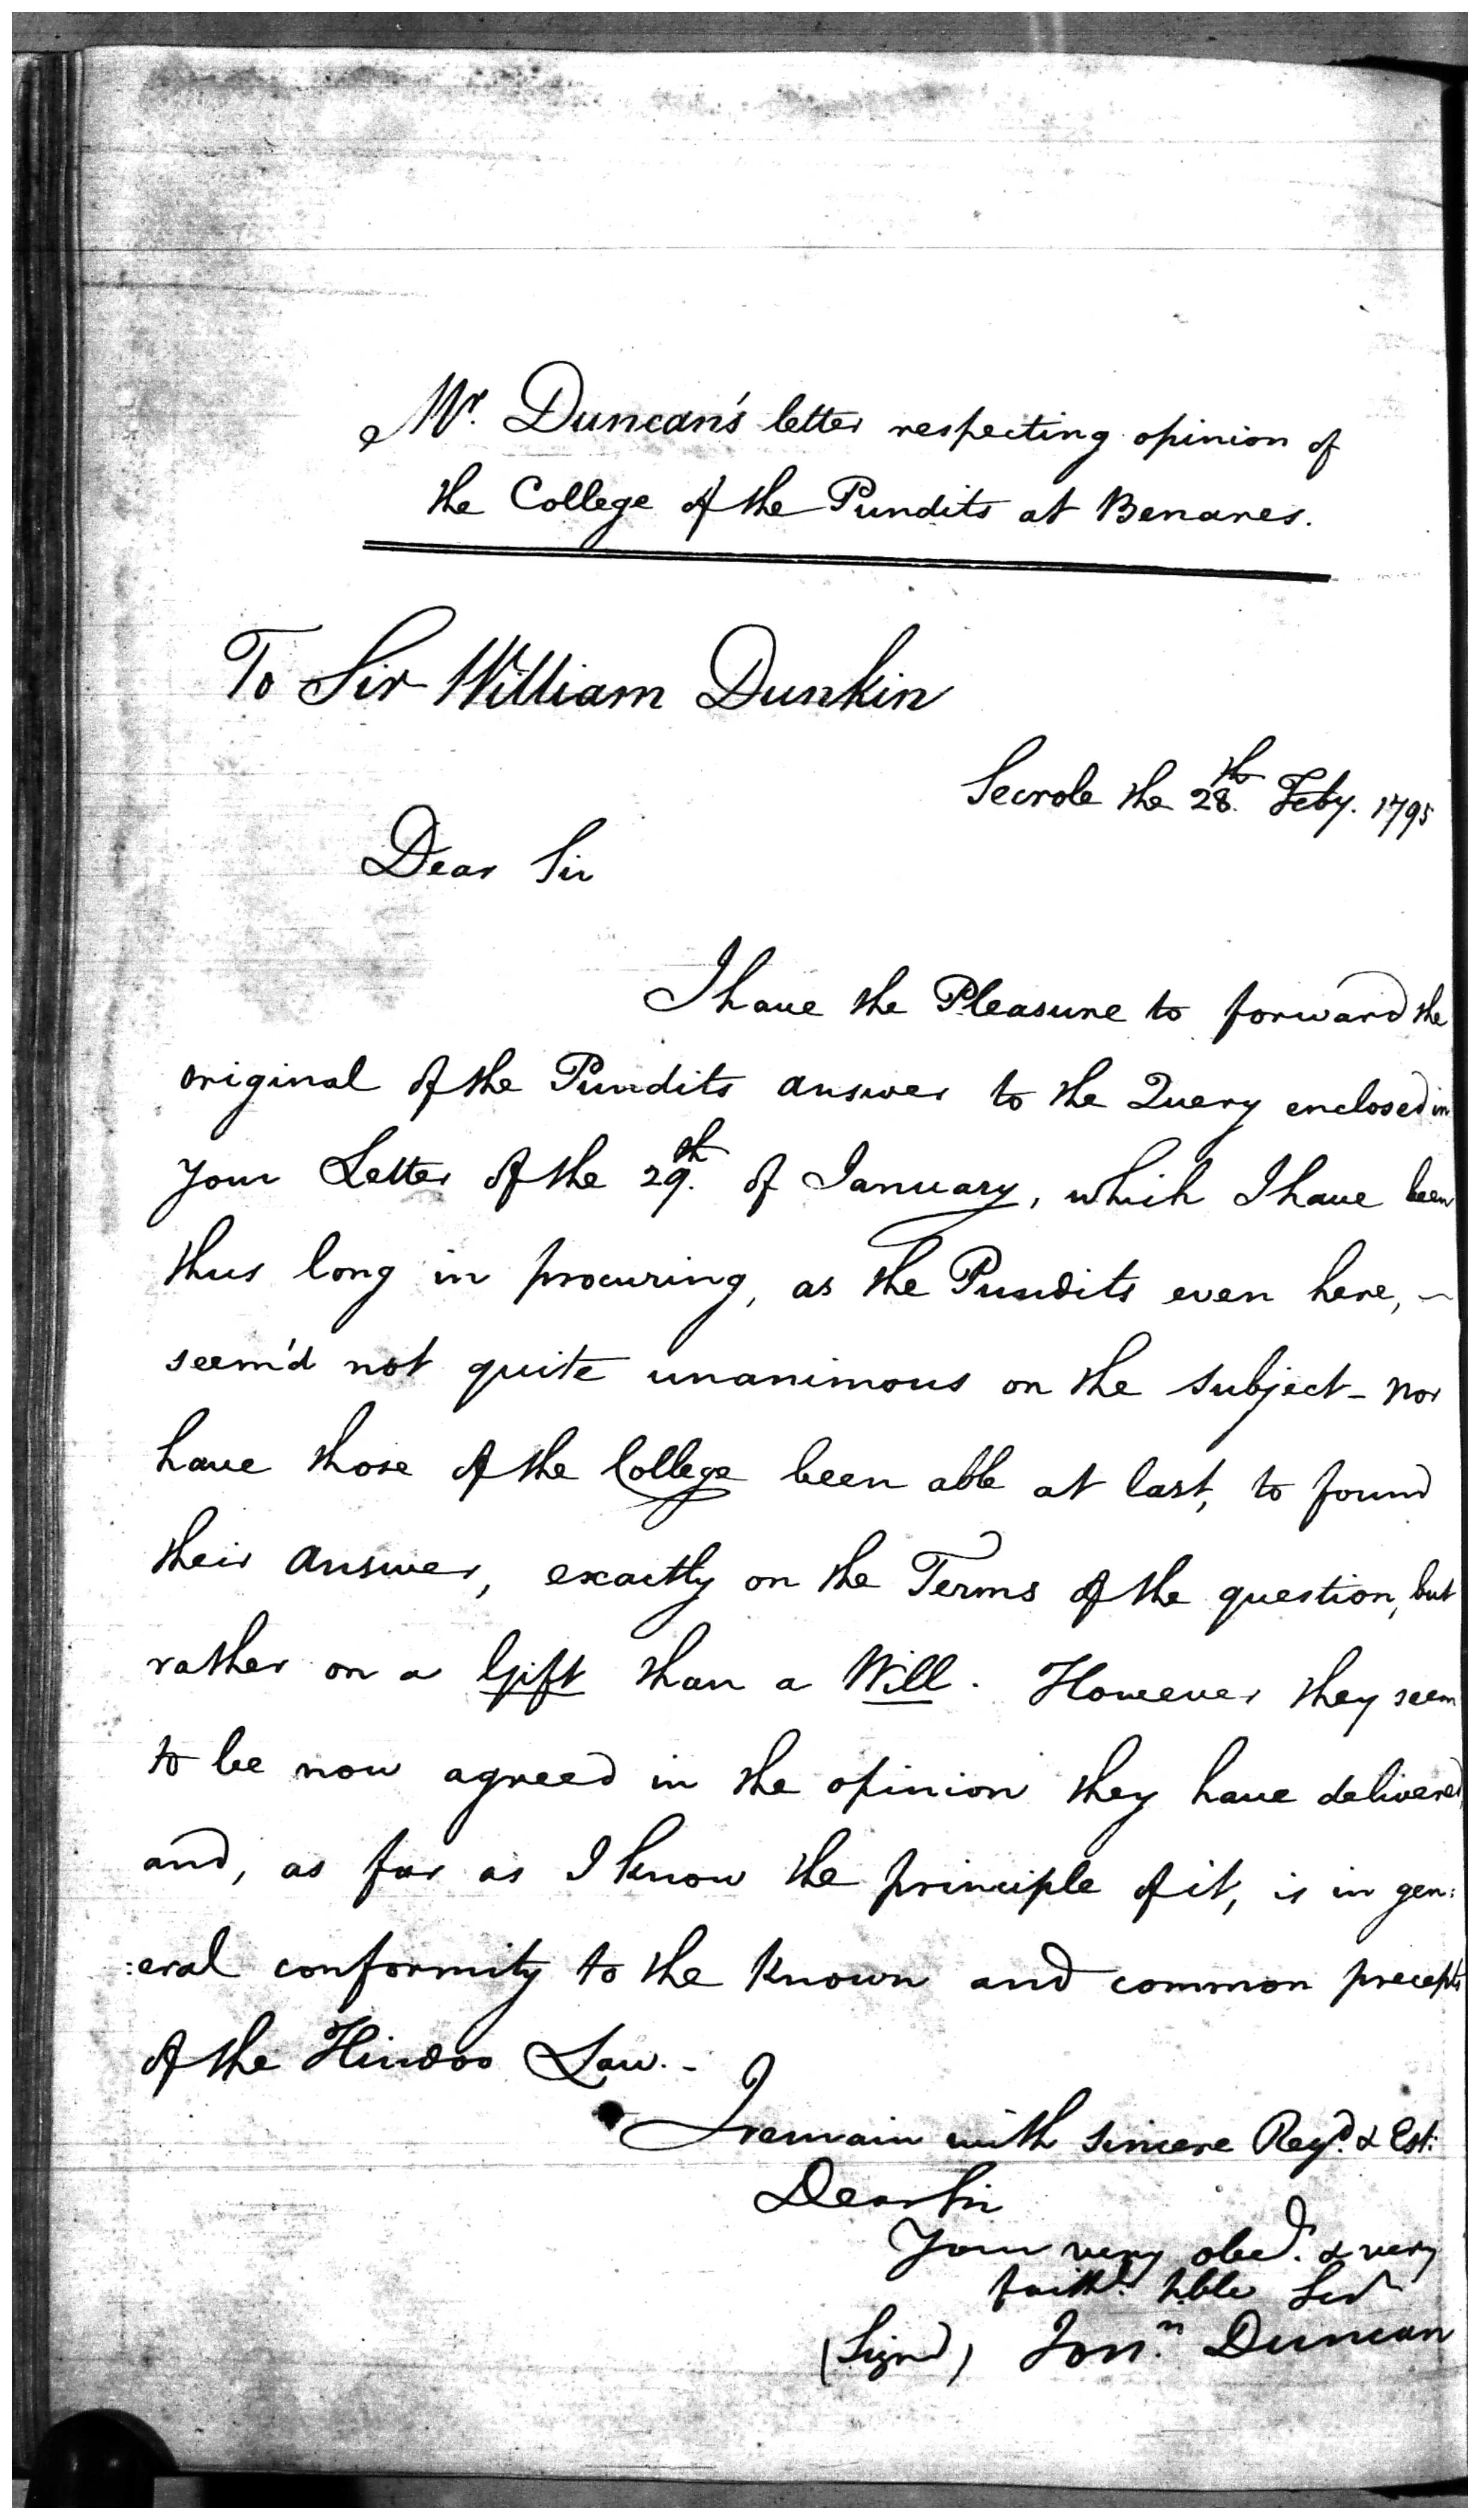 Mr. Duncan's letter respecting opinion of
the College of the Pundits at Benares.
To Sir William Dunkin
Secrole the 28th. Feby. 1795
Dear Sir
I have the Pleasure to forward the
original of the Pundits answer to the Query enclosed in
your Letter of the 29th. of January, which I have been
thus long in procuring, as the Pundits even here, ~
seem'd not quite unanimous on the subject - nor
have those of the College been able at last, to found
their answer, exactly on the Terms of the question, but
rather on a Gift than a Will. However they seem
to be now agreed in the opinion they have delivered
and, as far as I know the principle of it, is in gen:
:eral conformity to the known and common precepts
of the Hindoo Law. -
I remain with sincere Regd. & Est:
Dear Sir
Your very obed. & very
faithl. hble Servt
(Signd) Jonn. Duncan